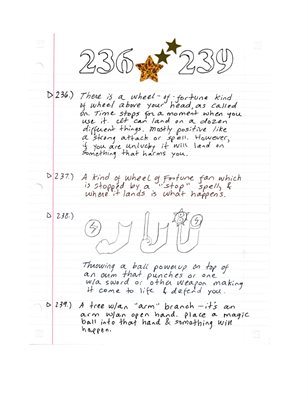 236 239
236.) There is a wheel-of-fortune kind
of wheel above your head, as called
on. Time stops for a moment when you
use it. It can land on a dozen
different things. Mostly positive like
a strong attack or spell. However,
if you are unlucky it will land on
something that harms you.
237.) A kind of Wheel of Fortune fan which
is stopped by a "stop" spell, &
where it lands is what happens.
238.)
Throwing a ball powerup on top of
an arm that punches or one
w/a sword or other weapon making
it come to life & defend you.
239.) A tree w/an "arm" branch - it's an
arm w/an open hand. Place a magic
ball into that hand & something will
happen.